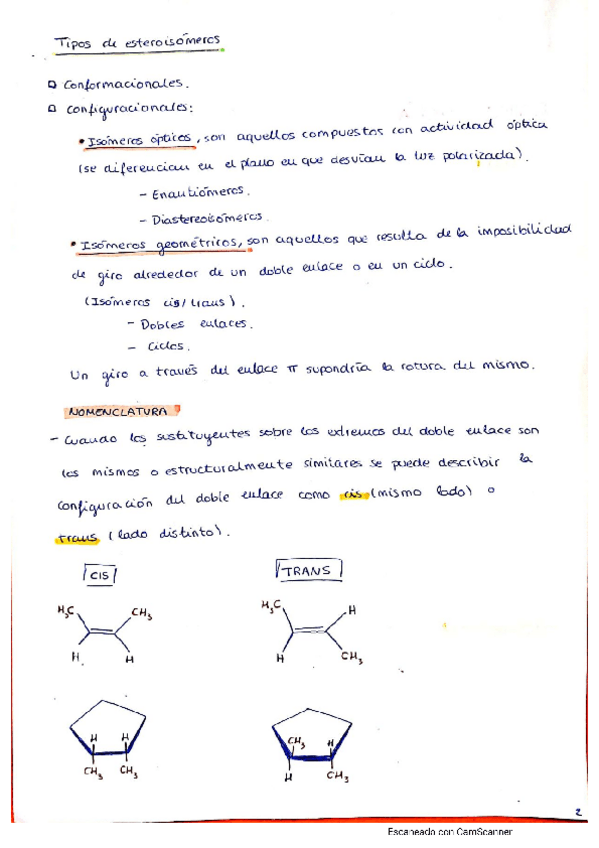 Tipos de esteroisómeros
Conformacionales.
Configuracionales:
• Isómeros ópticos, son aquellos compuestos con actividad óptica
(se diferencian en el plano en que desvían la luz polarizada).
- Enantiómeros.
- Diastereoisómeros.
• Isómeros geométricos, son aquellos que resulta de la imposibilidad
de giro alrededor de un doble enlace o en un ciclo.
(Isómeros cis/trans).
- Dobles enlaces.
- Ciclos.
Un giro a través del enlace π supondría la rotura del mismo.
NOMENCLATURA
- Cuando los sustituyentes sobre los extremos del doble enlace son
los mismos o estructuralmente similares se puede describir la
configuración del doble enlace como cis (mismo lado) o
trans (lado distinto).
CIS TRANS
H₃C CH₃ H₃C H
H H H CH₃
H H CH₃ H
CH₃ CH₃ H CH₃
2
Escaneado con CamScanner